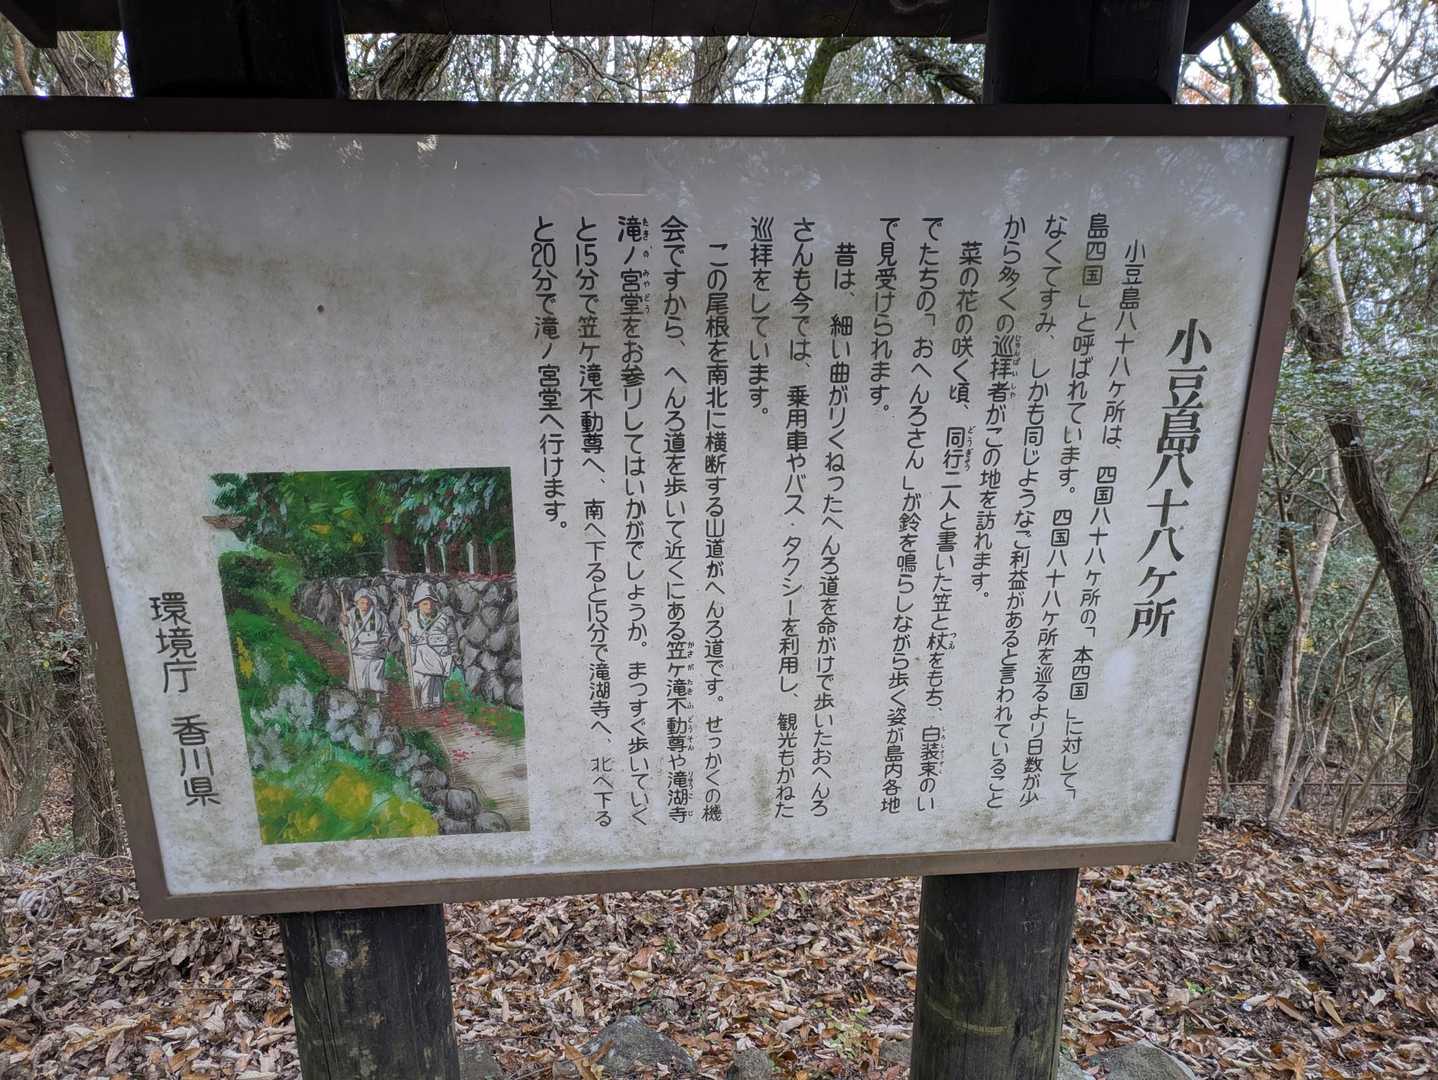 小豆島八十八ケ所
小豆島八十八ケ所は、四国八十八ケ所の「本四国」に対して「
島四国」と呼ばれています。四国八十八ケ所を巡るより日数が少
なくてすみ、しかも同じようなご利益があると言われていること
から多くの巡拝者がこの地を訪れます。
菜の花の咲く頃、同行二人と書いた笠と杖をもち、白装束のい
でたちの「おへんろさん」が鈴を鳴らしながら歩く姿が島内各地
で見受けられます。
昔は、細い曲がりくねったへんろ道を命がけで歩いたおへんろ
さんも今では、乗用車やバス・タクシーを利用し、観光もかねた
巡拝をしています。
この尾根を南北に横断する山道がへんろ道です。せっかくの機
会ですから、へんろ道を歩いて近くにある笠ケ滝不動尊や滝湖寺
滝ノ宮堂をお参りしてはいかがでしょうか。まっすぐ歩いていく
と15分で笠ケ滝不動尊へ、南へ下ると15分で滝湖寺へ、北へ下る
と20分で滝ノ宮堂へ行けます。
環境庁 香川県